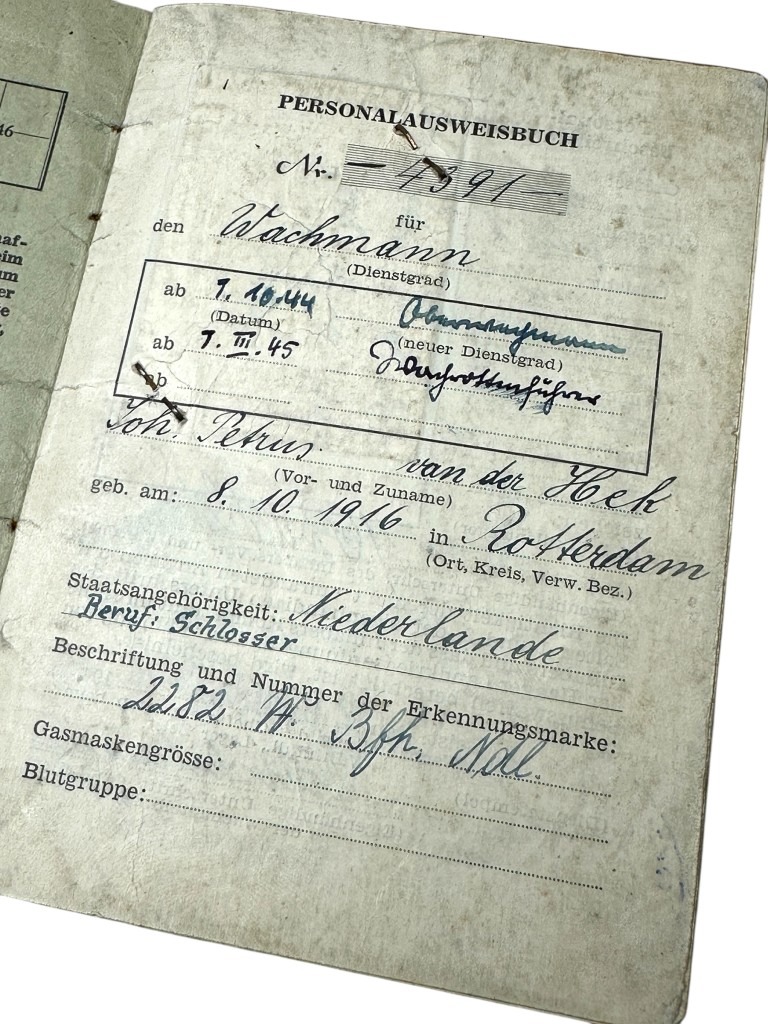 46
af-
eim
um
er
e
PERSONALAUSWEISBUCH
Nr. – 4391 –
für
den Wachmann
(Dienstgrad)
ab 1. 10.44 Oberwachmann
(Datum) (neuer Dienstgrad)
ab 1. III. 45 Wachrottenführer
ab
Joh. Petrus van der Hek
(Vor- und Zuname)
geb. am: 8. 10. 1916 in Rotterdam
(Ort, Kreis, Verw. Bez.)
Staatsangehörigkeit: Niederlande
Beruf: Schlosser
Beschriftung und Nummer der Erkennungsmarke:
2282 W. Bfh. Ndl.
Gasmaskengrösse:
Blutgruppe: